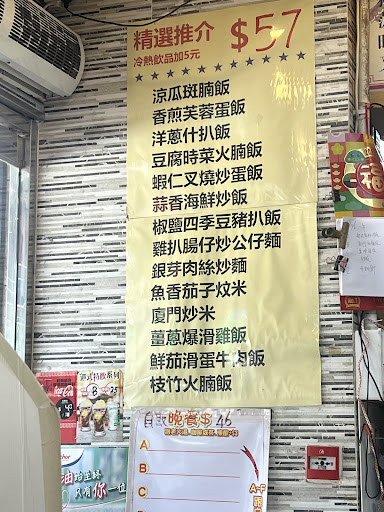 精選推介 $57
冷熱飲品加5元
涼瓜斑腩飯
香煎芙蓉蛋飯
洋蔥什扒飯
豆腐時菜火腩飯
蝦仁叉燒炒蛋飯
蒜香海鮮炒飯
椒鹽四季豆豬扒飯
雞扒腸仔炒公仔麵
銀芽肉絲炒麵
魚香茄子炆米
廈門炒米
薑蔥爆滑雞飯
鮮茄滑蛋牛肉飯
枝竹火腩飯
福
港式特飲系列
晚餐$ 46
A
B
C
A-F
只有你一位